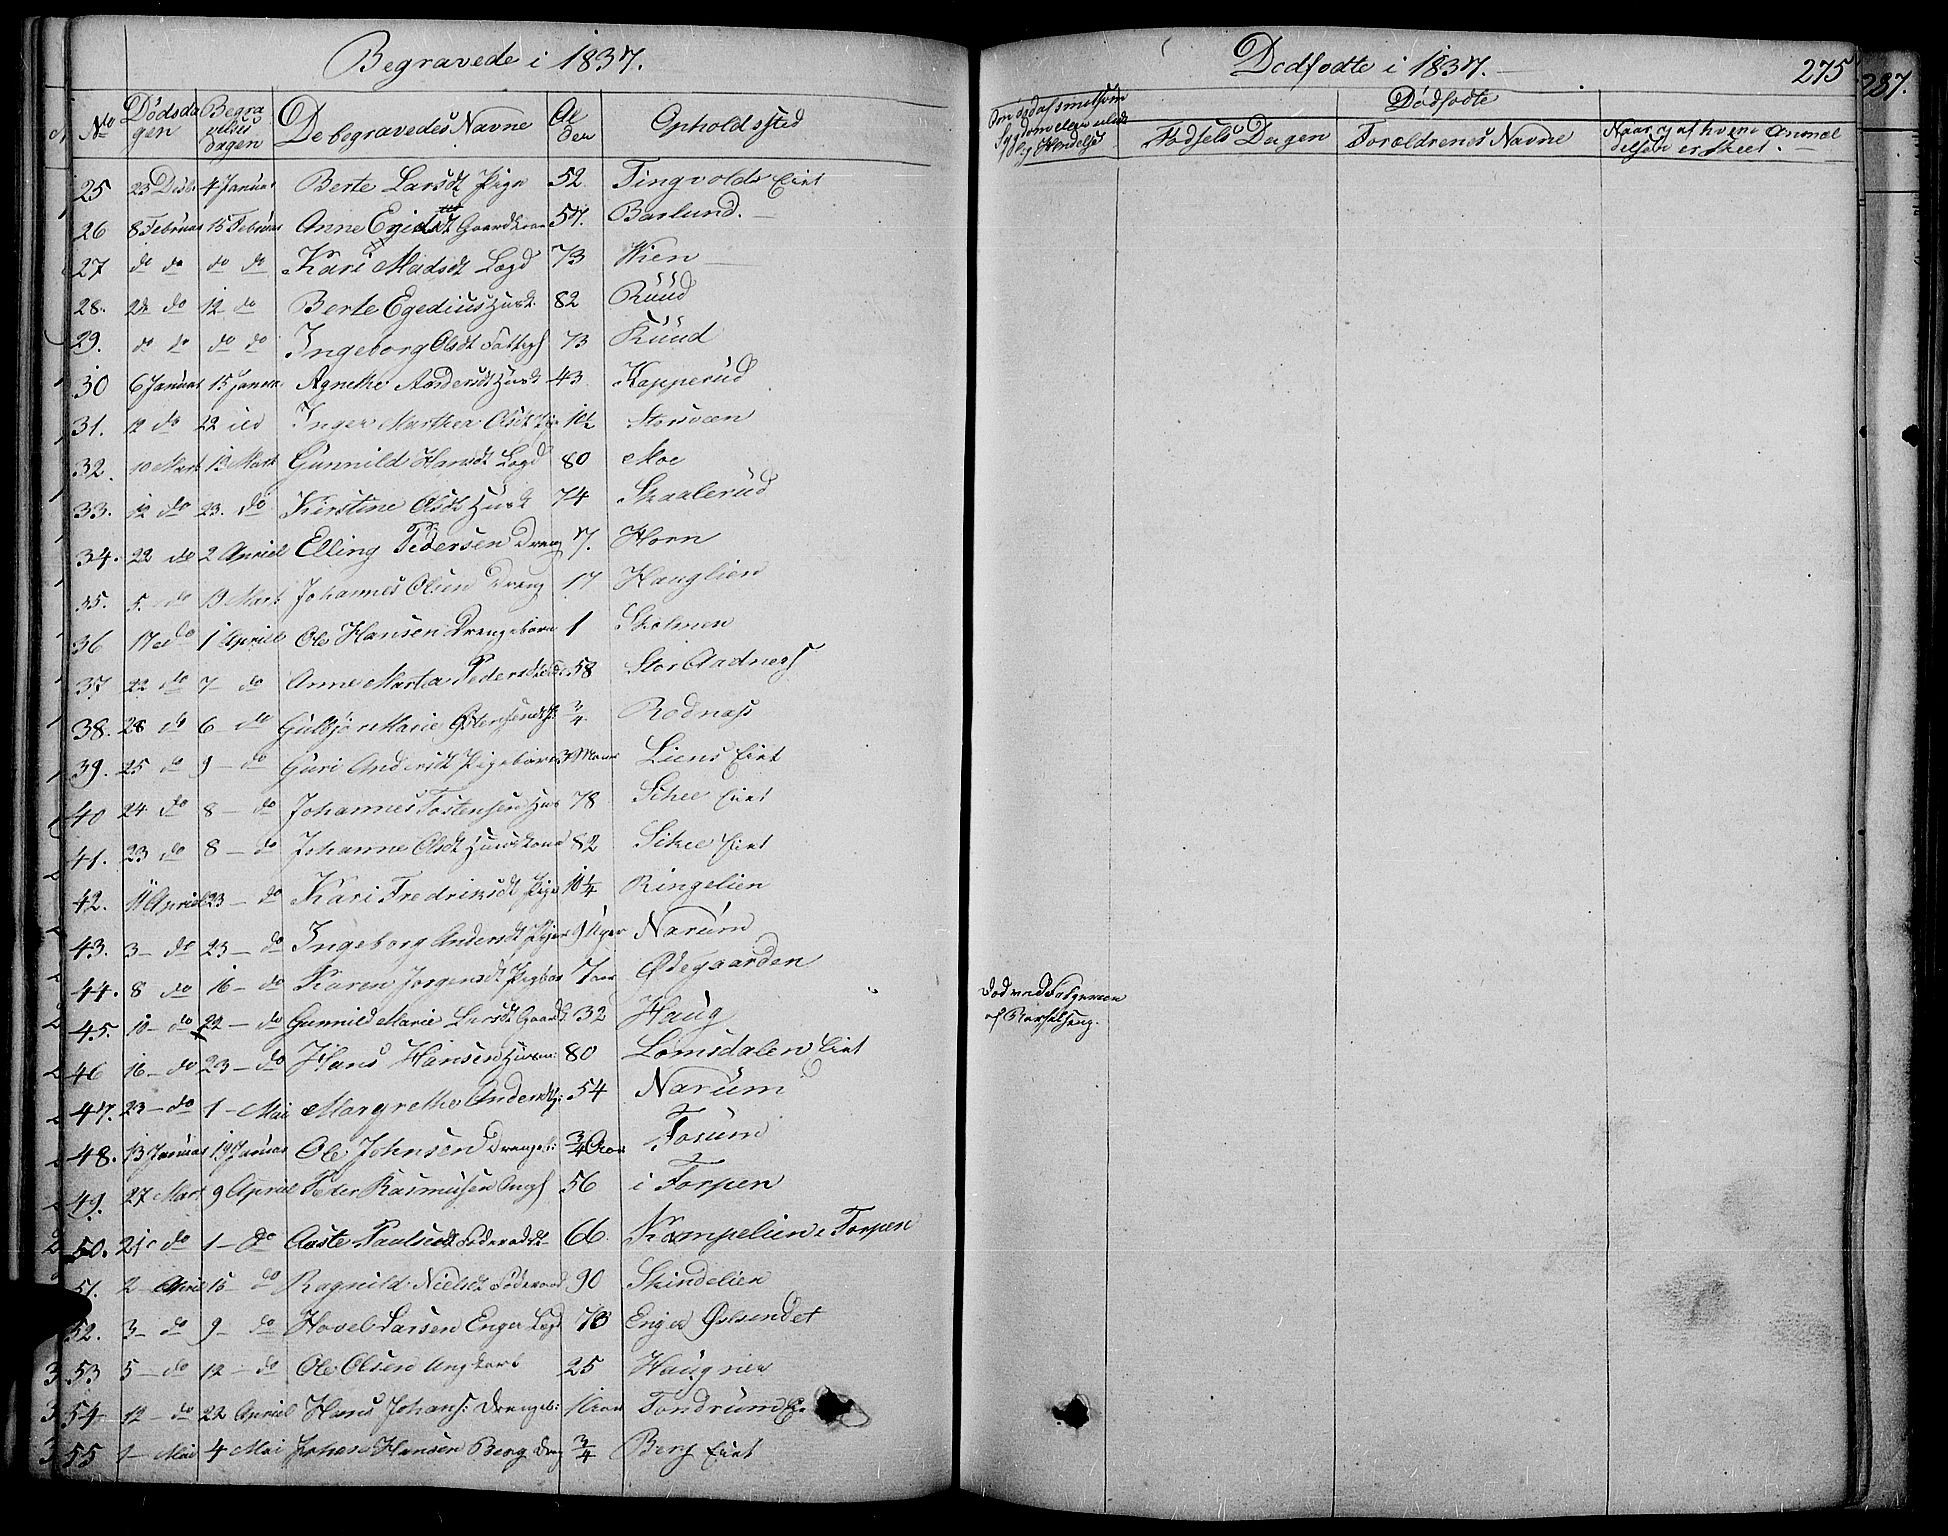 Begravede i 1837.
No Dødsdagen Begravelses dagen De begravedes Navne Alder Opholdssted
25 23 Decbr 4 Januar Berte Larsdt Pige 52 Tingvolds Eiet
26 8 Februar 15 Februar Anne Egidsdt Gaardkone 57. Barlund.
27 do do do do Kari Madsdt Lægd 73 Wien
28. 2 do 12 do Berte Egedius Husk 82 Ruud
29. do do do do Ingeborg Olsdt Fattigl 73 Ruud
30 6 Januar 15 Januar Agnethe Andersdt Husk 43 Kapperud
31. 12 do 22 Inger Marthea Olsdt 10½ Storsveen
32. 10 Mart 13 Mart Gunnild Hansdt Lægd 80 Moe
33. 12 do 23. do Kirstine Olsdt Husk 74 Skaalerud
34. 22 do 2 Apriel Elling Pedersen Dreng 7. Horn
35. 5. do 13 Mart Johannes Olsen Dreng 17 Hauglien
36 17 do 1 Apriel Ole Hansen Drengebarn 1
37 22 do 7 do Anne Martea Pedersdt 58 Stor Aadnes
38. 28 do 6 do Marie ¾ Rodnæs
39. 25 do 9 do Guri Andersdt Pigebarn 3 Liens Eiet
40 24 do 8 do Johannes Tostensen Hus 78 Schee Eiet
41. 23 do 8 do Johanne Olsdt Huuskone 82 Schee Eiet
42. 11 Apriel 23 do Kari Fredriksdt Pige 10¼ Ringelien
43. 3 do 23 do Ingeborg Andersdt 9 Uger Narum
44. 8 do 16 do Karen Jørgensdt 7 Ødegaarden
45. 10 do 22 do Gunnild Marie Larsdt Gaardk 32 Haug
46 16 do 23 do Hans Hansen Husm: 80 Lomsdalen Eiet
47. 23 do 1 Mai Margrethe Andersdt 54 Narum
48. 13 Januar 19 Januar Ole Johnsen Drengeb: ¾ Aar Fosum
49. 27 Mart 9 Apriel Peder Rasmusen 56 i Torpen
50. 21 do 1 do Aaste Paulsdt 66. Kompelien i Torpen
51. 2 April 15 do Ragnild Nielsdt Føderaad 90 Skindelien
52. 3 do 9 do Hovel Larsen Enger Lægd 73 Enger Østsendet
53 5 do 12 do Ole Olsen Ungkarl 25 Haugner
54 12 do 22 Apriel Hans Johans: Drengeb: 1 Aar
55 1 Mai 4 Mai Johan Hansen Berg Dreng ¾ Berg Eiet
Dødfødte i 1837.
275
287.
Dødfødte
Fødsels Dagen Forældrenes Navne Naar og af hvem Anmeldelsen er skeet.
Død ved Følgerne
af Barselseng.